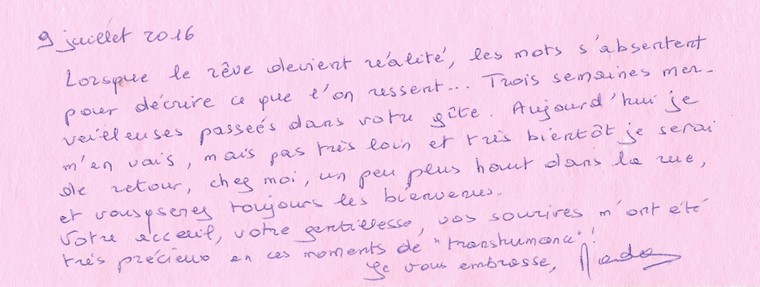 9 juillet 2016
Lorsque le rêve devient réalité, les mots s'absentent
pour décrire ce que l'on ressent... Trois semaines mer-
veilleuses passées dans votre gîte. Aujourd'hui je
m'en vais, mais pas très loin et très bientôt je serai
de retour, chez moi, un peu plus haut dans la rue,
et vous y serez toujours les bienvenus.
Votre acceuil, votre gentillesse, vos sourires m'ont été
très précieux en ces moments de "transhumance"!
Je vous embrasse,